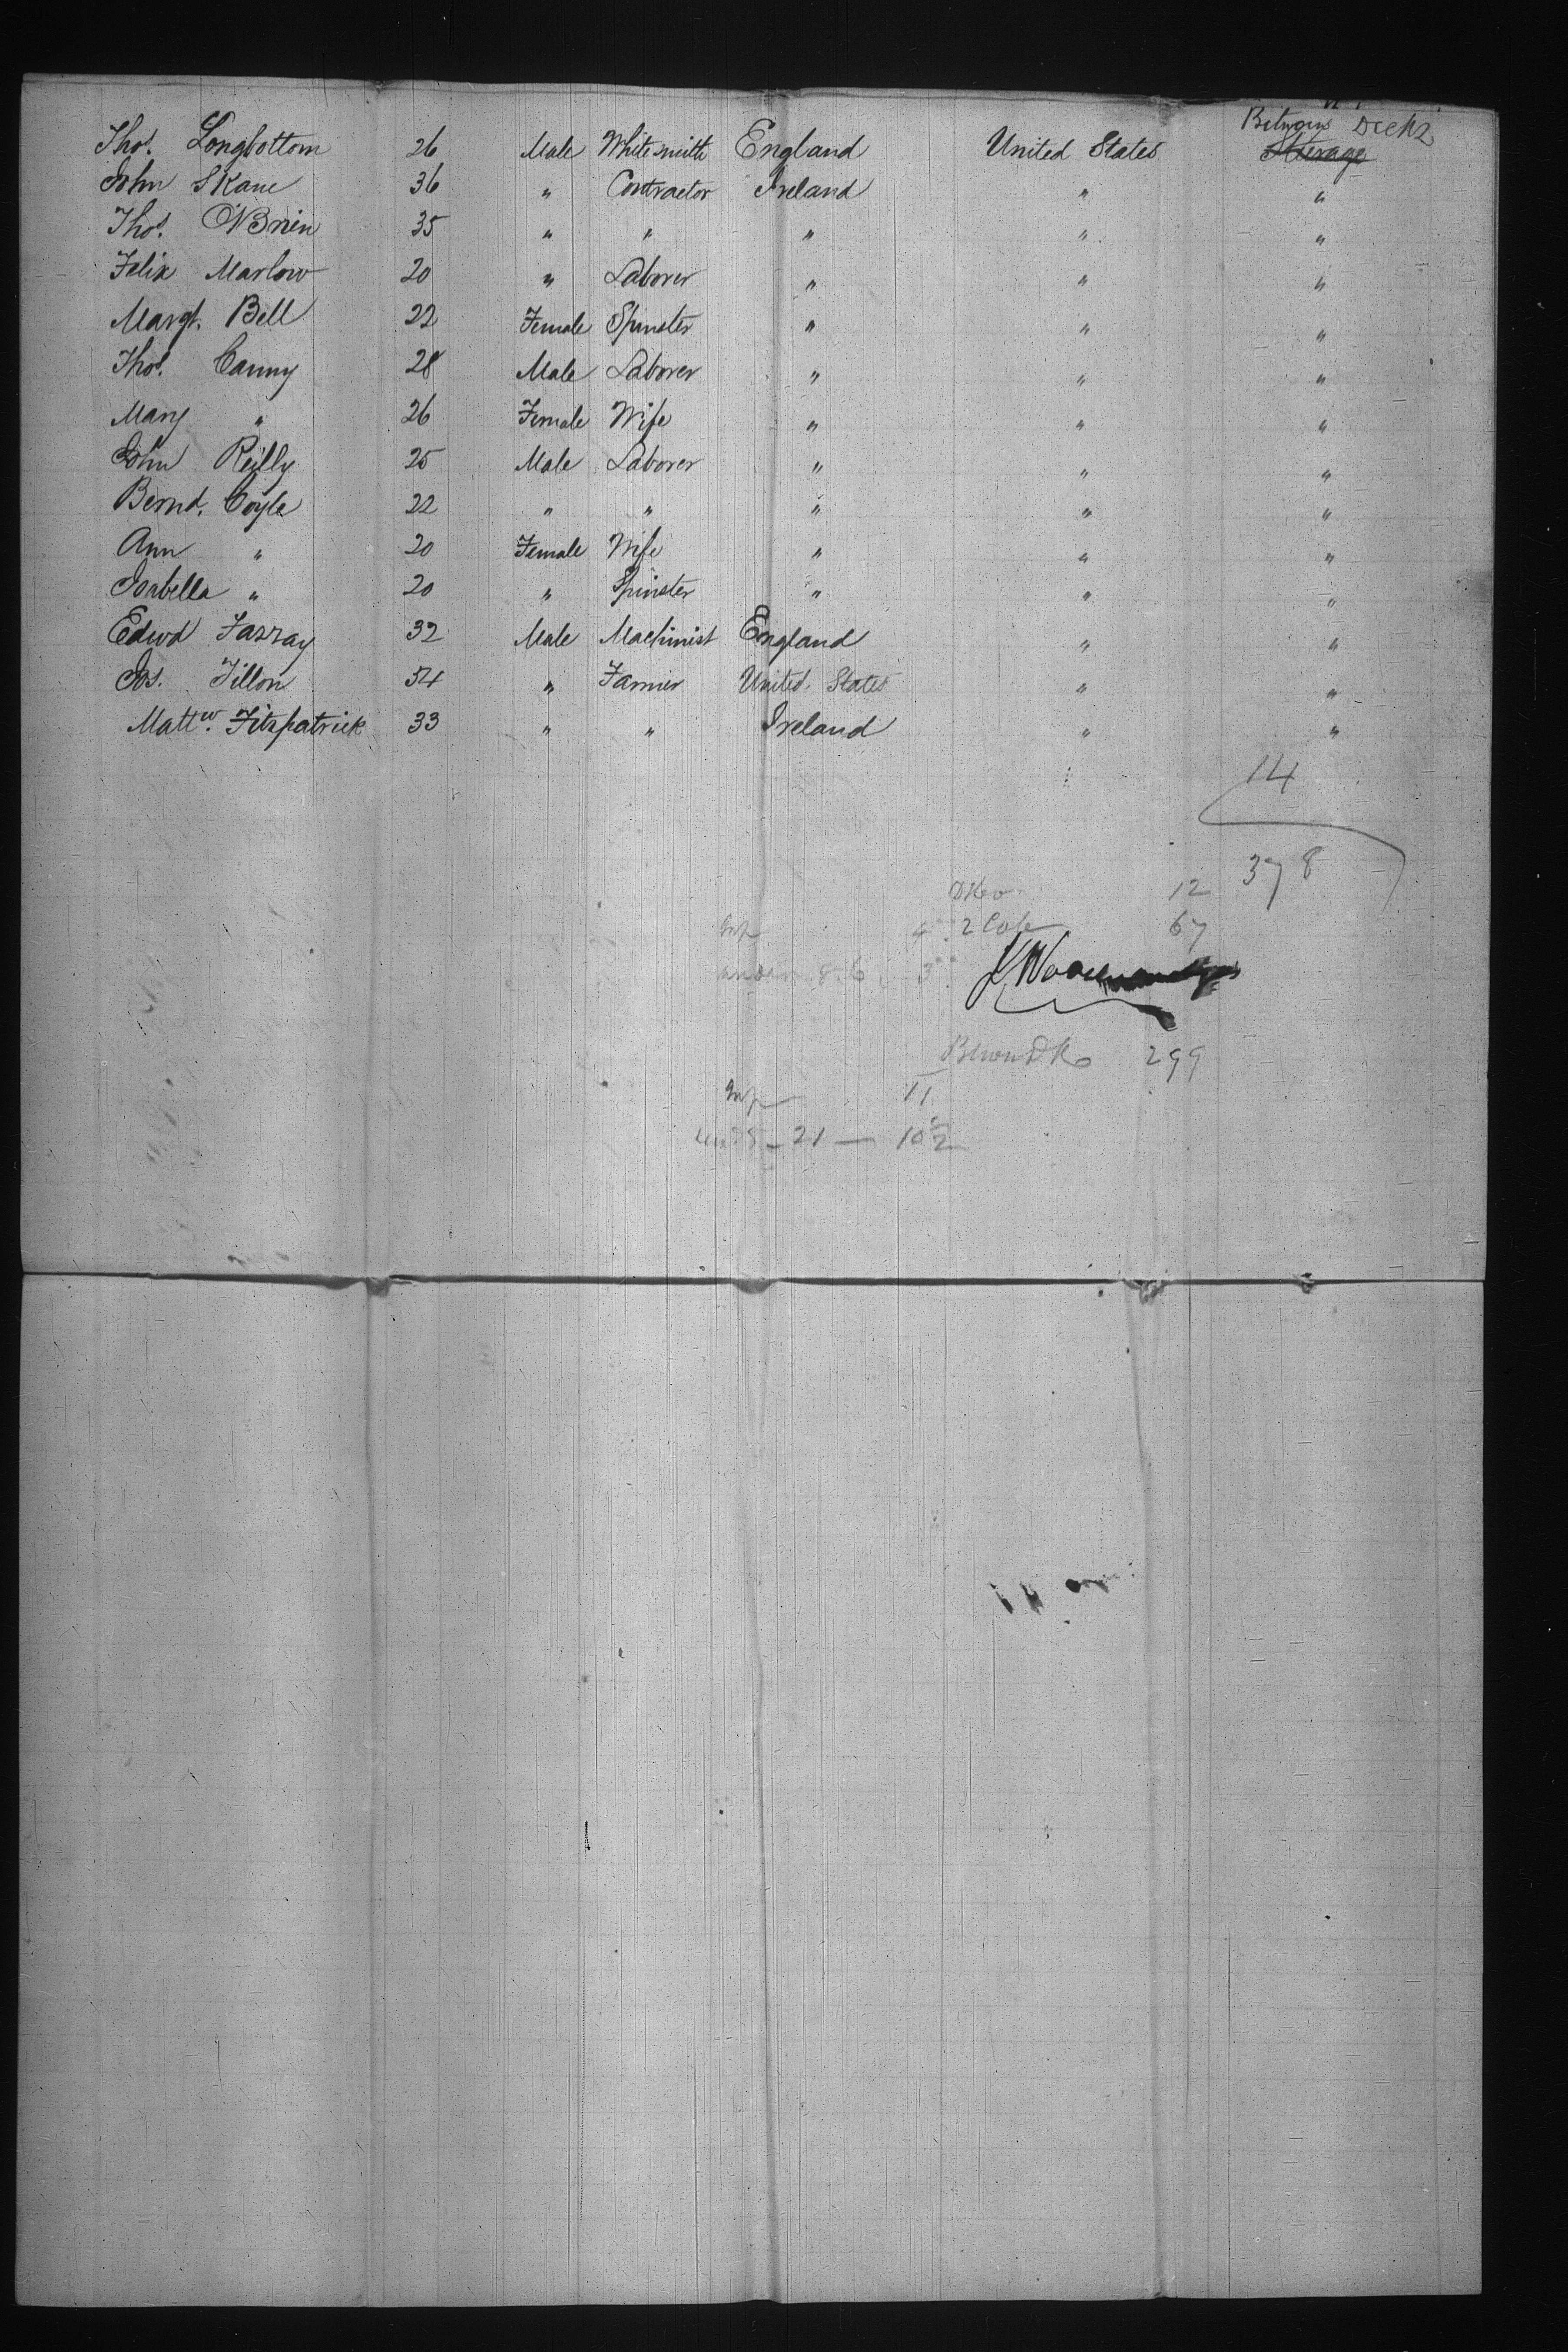 Between Decks
Thos. Longbottom 26 Male Whitesmith England United States Steerage
John Skane 36 " Contractor Ireland " "
Thos. O'Brien 35 " " " " "
Felix Marlow 20 " Laborer " " "
Margt. Bell 22 Female Spinster " " "
Thos. Canny 28 Male Laborer " " "
Mary " 26 Female Wife " " "
John Reilly 25 Male Laborer " " "
Bernd. Coyle 22 " " " " "
Ann " 20 Female Wife " " "
Isabella " 20 " Spinster " " "
Edwd Farray 32 Male Machinist England " "
Jos. Tillon 54 " Farmer United States " "
Mattw. Fitzpatrick 33 " " Ireland " "
14
378
12
2 Cabe 67
3
299
11
21 — 10